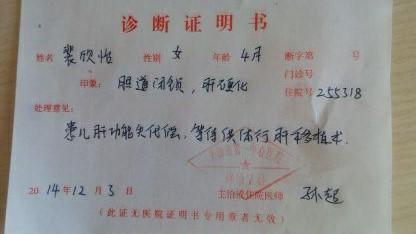 诊断证明书
姓名 裴欣怡 性别 女 年龄 4月 断字第 号
门诊号
印象: 胆道闭锁,肝硬化 住院号 255318
处理意见:
患儿肝功能失代偿,等待供体行肝移植术.
2014年12月3日 主治或住院医师 孙超
(此证无医院证明书专用章者无效)